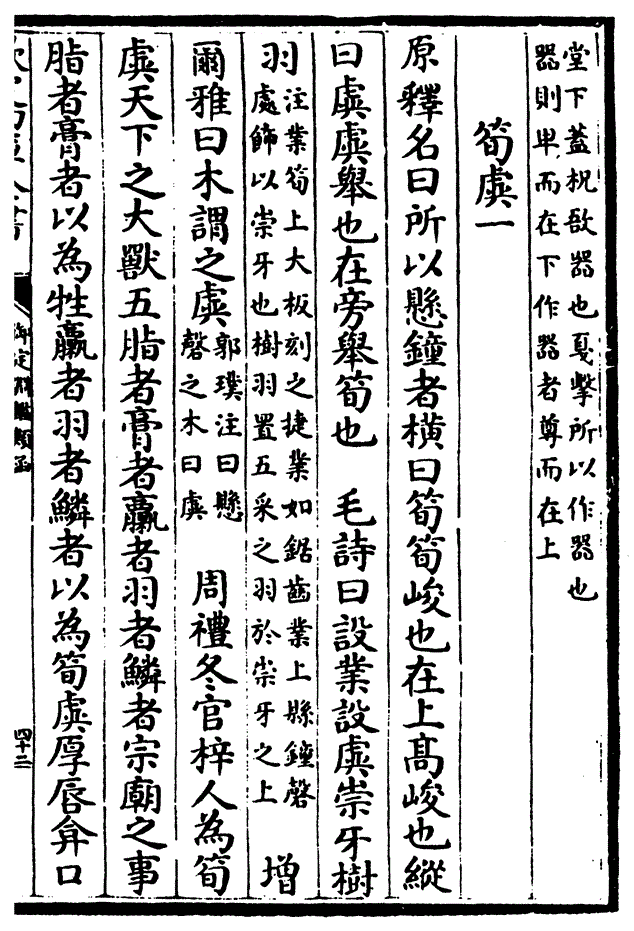 堂下蓋柷敔器也戛擊所以作器也
器則卑而在下作器者尊而在上
筍虡一
原釋名曰所以懸鐘者橫曰筍筍峻也在上高峻也縱
曰虡虡舉也在旁舉筍也　毛詩曰設業設虡崇牙樹
羽注業筍上大板刻之捷業如鋸齒業上縣鐘磬
處飾以崇牙也樹羽置五采之羽於崇牙之上　增
爾雅曰木謂之虡郭璞注曰懸
磬之木曰虡　周禮冬官梓人為筍
虡天下之大獸五脂者膏者臝者羽者鱗者宗廟之事
脂者膏者以為牲臝者羽者鱗者以為筍虡厚唇弇口
御定淵鑑類函
四十二